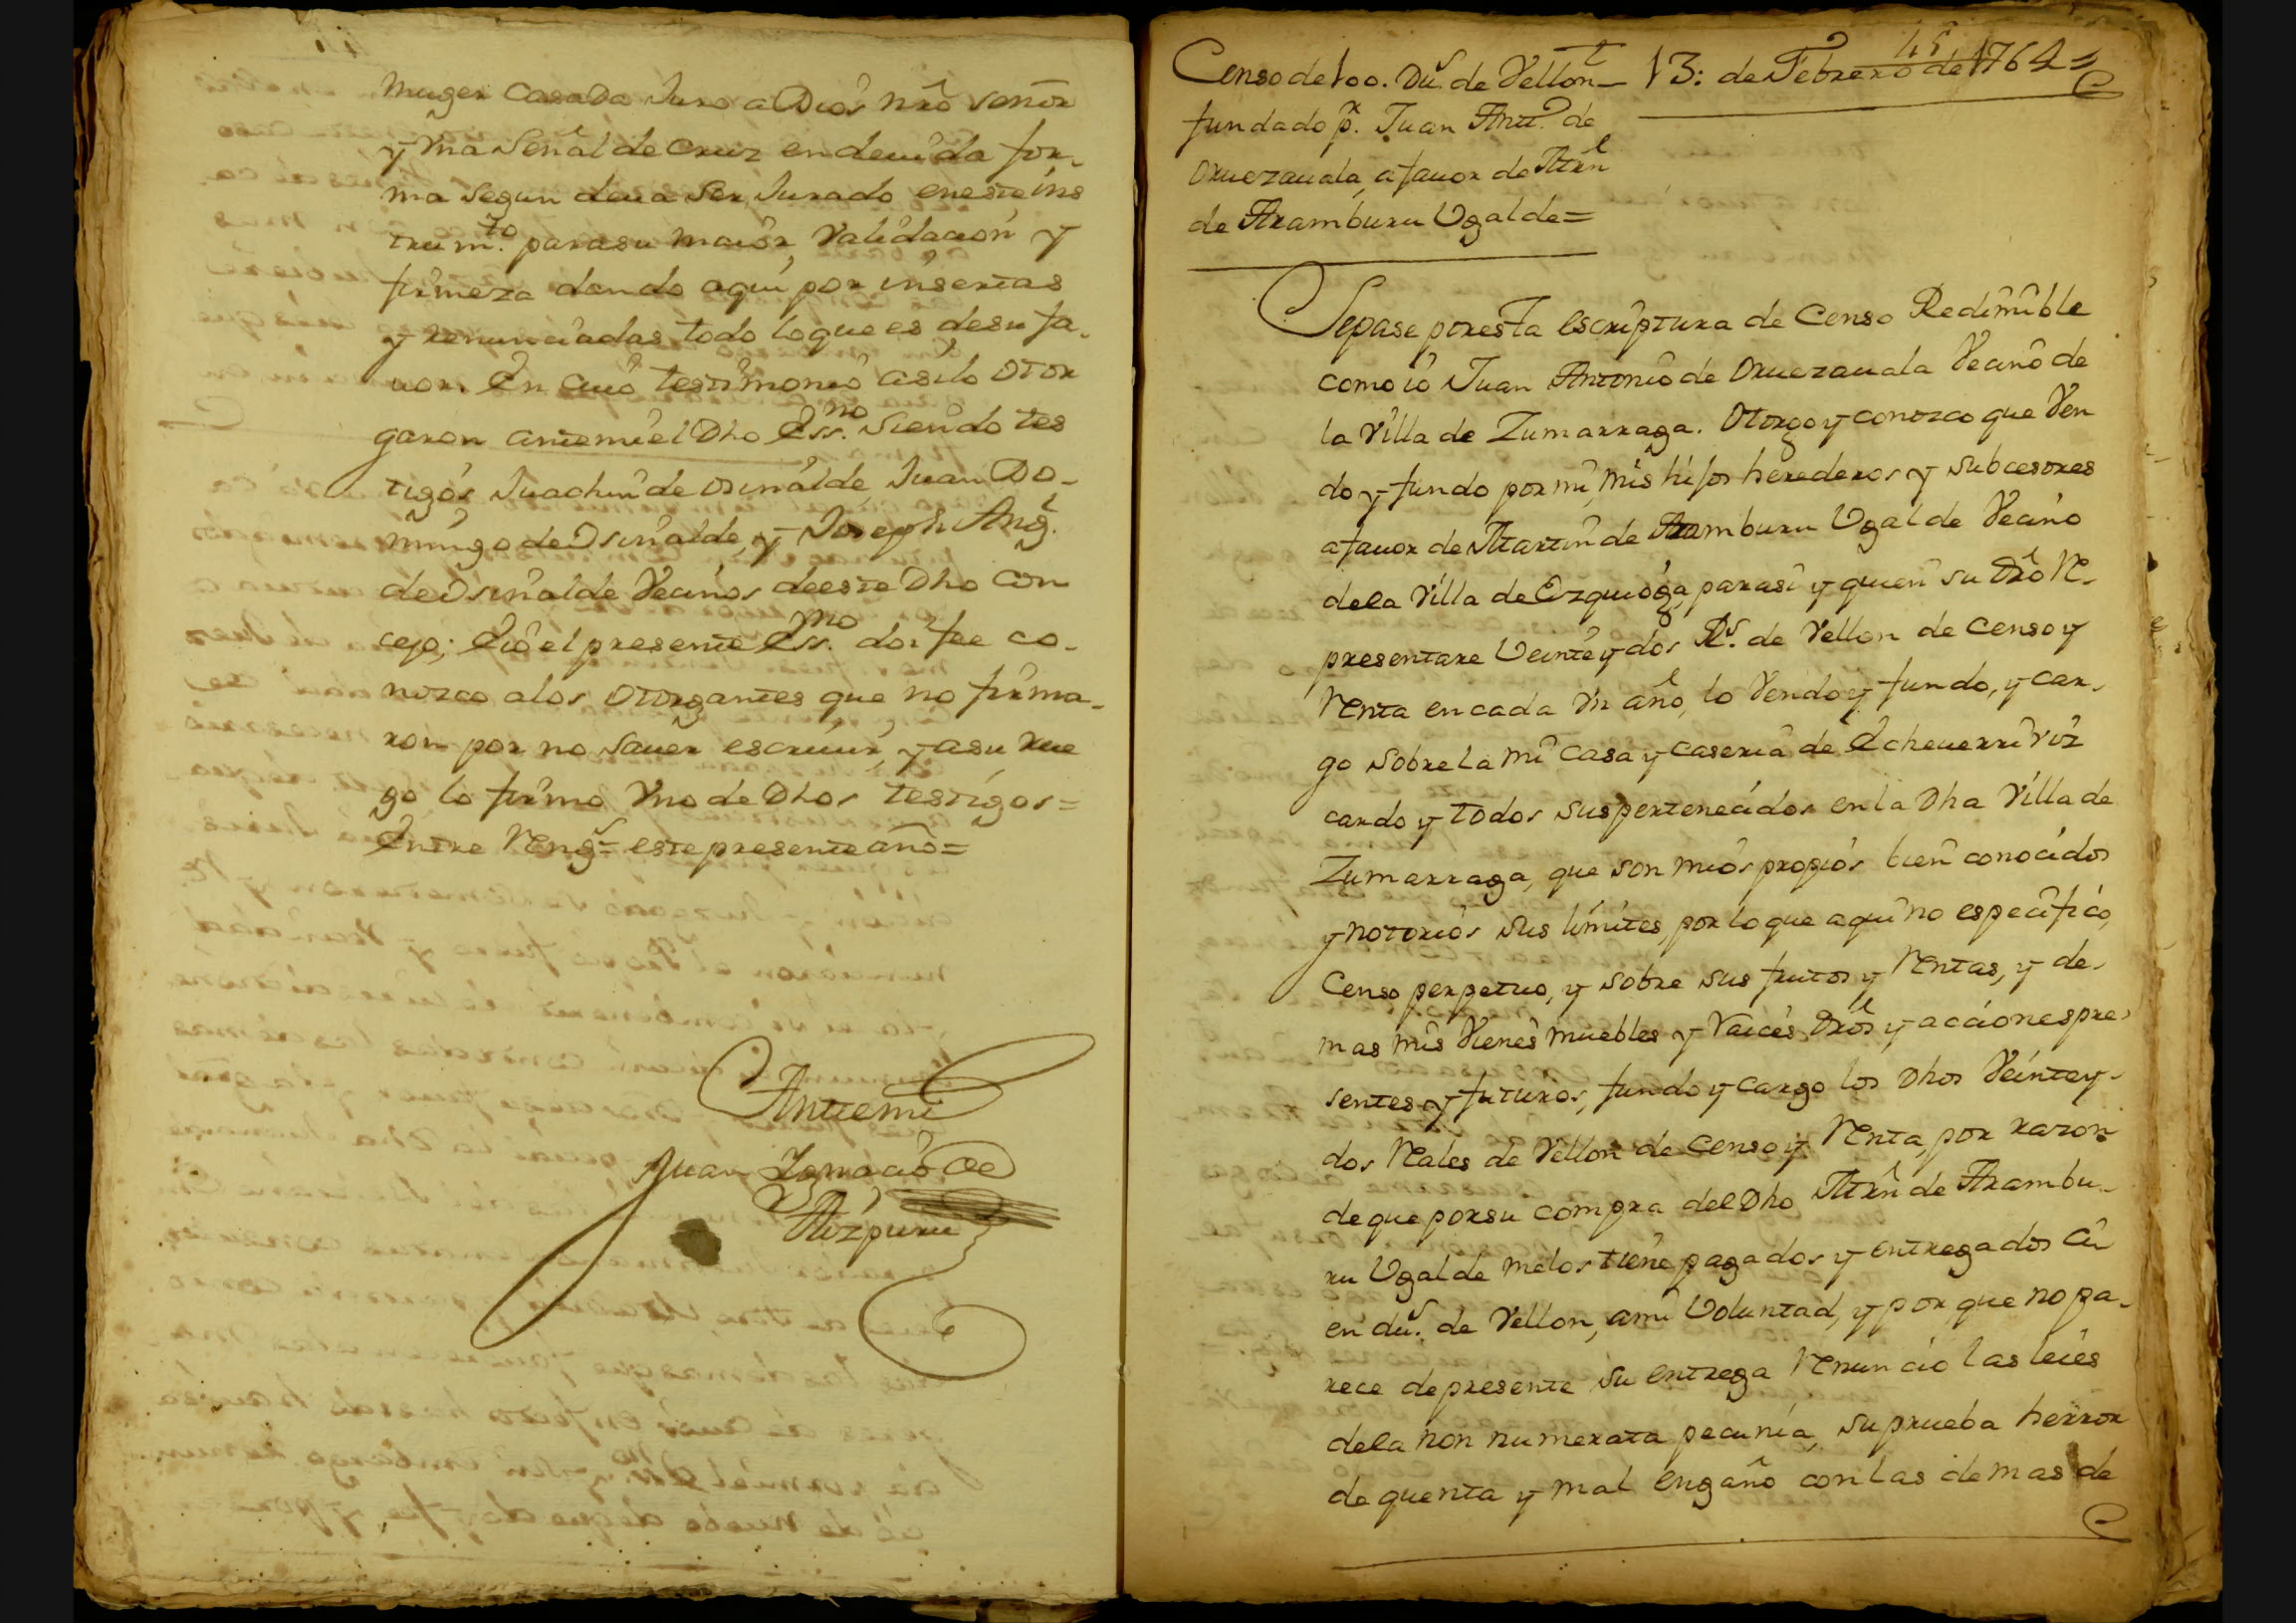 muger casada Juro a Dios nrō señor
y vna señal de cruz en deuida for-
ma segun deua ser Jurado eneste ins
trumto. parasu maior validacion y
firmeza dando aqui por insertas
y renunciadas todo loque es desu fa-
uor. En cuio testimonio asilo otor
garon antemi el Dho Essno. siendo tes
tigos Juachin de osinalde, Juan Do-
mingo de Osinalde, y Joseph Angl.
de Osinalde Vecinos deeste Dho con
cejo; Eio el presente Essno. doi fee co-
nozco alos otorgantes que no firma-
ron por no sauer escriuir, y asu rue
go lo firmo Vno de Dhos testigos=
Entre Rengs= este presente año=
Antemi
Juan Ignacio de
Aizpuru
45
Censo de 100. Dus. de Vellon_ 13: de Febrero de 1764=
fundado pr. Juan Antto. de
oruezauala, a fauor de Mrn
de Aramburu Ugalde=
Sepase poresta escriptura de Censo Redimible
como io Juan Antonio de Oruezauala Vecino de
la Villa de Zumarraga. Otorgo y conozco que Ven
do y fundo por mi, mis hijos herederos y subcesores
afauor de Martin de Aramburu Ugalde Vecino
dela Villa de Ezquioga, parasi y quien su Dro Re-
presentare Veinte y dos Rs. de Vellon de censo y
Renta encada Vn año, lo Vendo y fundo, y car-
go sobre la mi casa y caseria de Echeuerri viz
cardo y todos sus pertenecidos enla Dha Villa de
Zumarraga, que son mios propios bien conocidos
y notorios sus limites, por lo que aqui no especifico,
Censo perpetuo, y sobre sus frutos y Rentas, y de-
mas mis Vienes muebles y Raices Dros y acciones pre-
sentes y futuros, fundo y cargo los Dhos Veinte y-
dos Reales de Vellon de censo y Renta, por razon
de que por su compra del Dho Mrn de Arambu-
ru Ugalde melos tiene pagados y entregados Ci
en dus. de Vellon, ami Voluntad, y por que no pa-
rece depresente su entrega Renuncio las leies
dela non numerata pecunia, su prueba herror
de quenta y mal engaño con las demas de